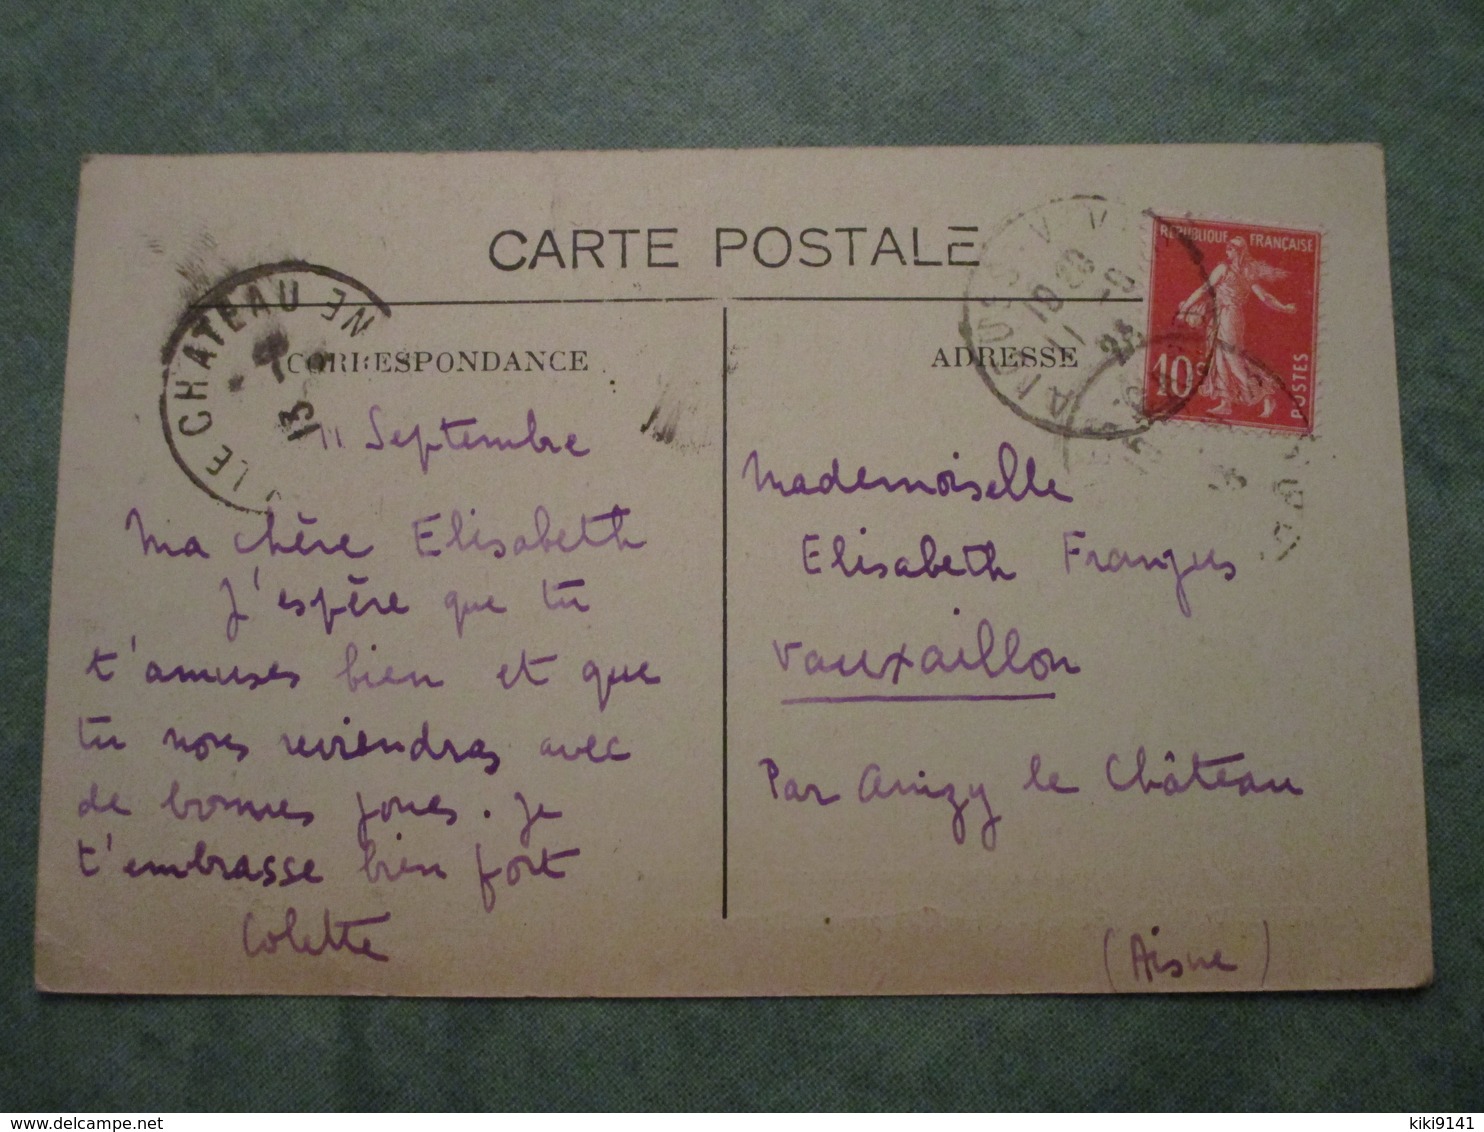 CARTE POSTALE
CORRESPONDANCE
11 Septembre
Ma chère Elisabeth
J'espère que tu
t'amuses bien et que
tu nous reviendras avec
de bonnes joues. Je
t'embrasse bien fort
Colette
ADRESSE
Mademoiselle
Elisabeth
Vauxaillon
Par Anizy le Château
(Aisne)
REPUBLIQUE FRANÇAISE
10c
POSTES
LE CHATEAU
13
delcampe.net
kiki9141